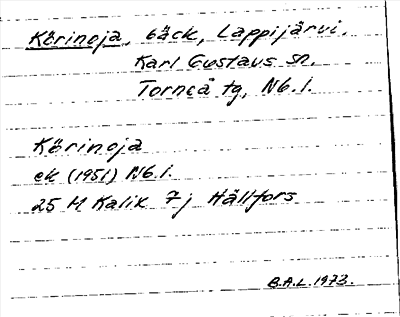 Körinoja, bäck, Lappijärvi,
Karl Gustavs sn.
Torneå tg, Nb.l.
Körinoja
ek (1951) Nb.l.
25 M Kalix 7j Hällfors
B.A.L. 1973.